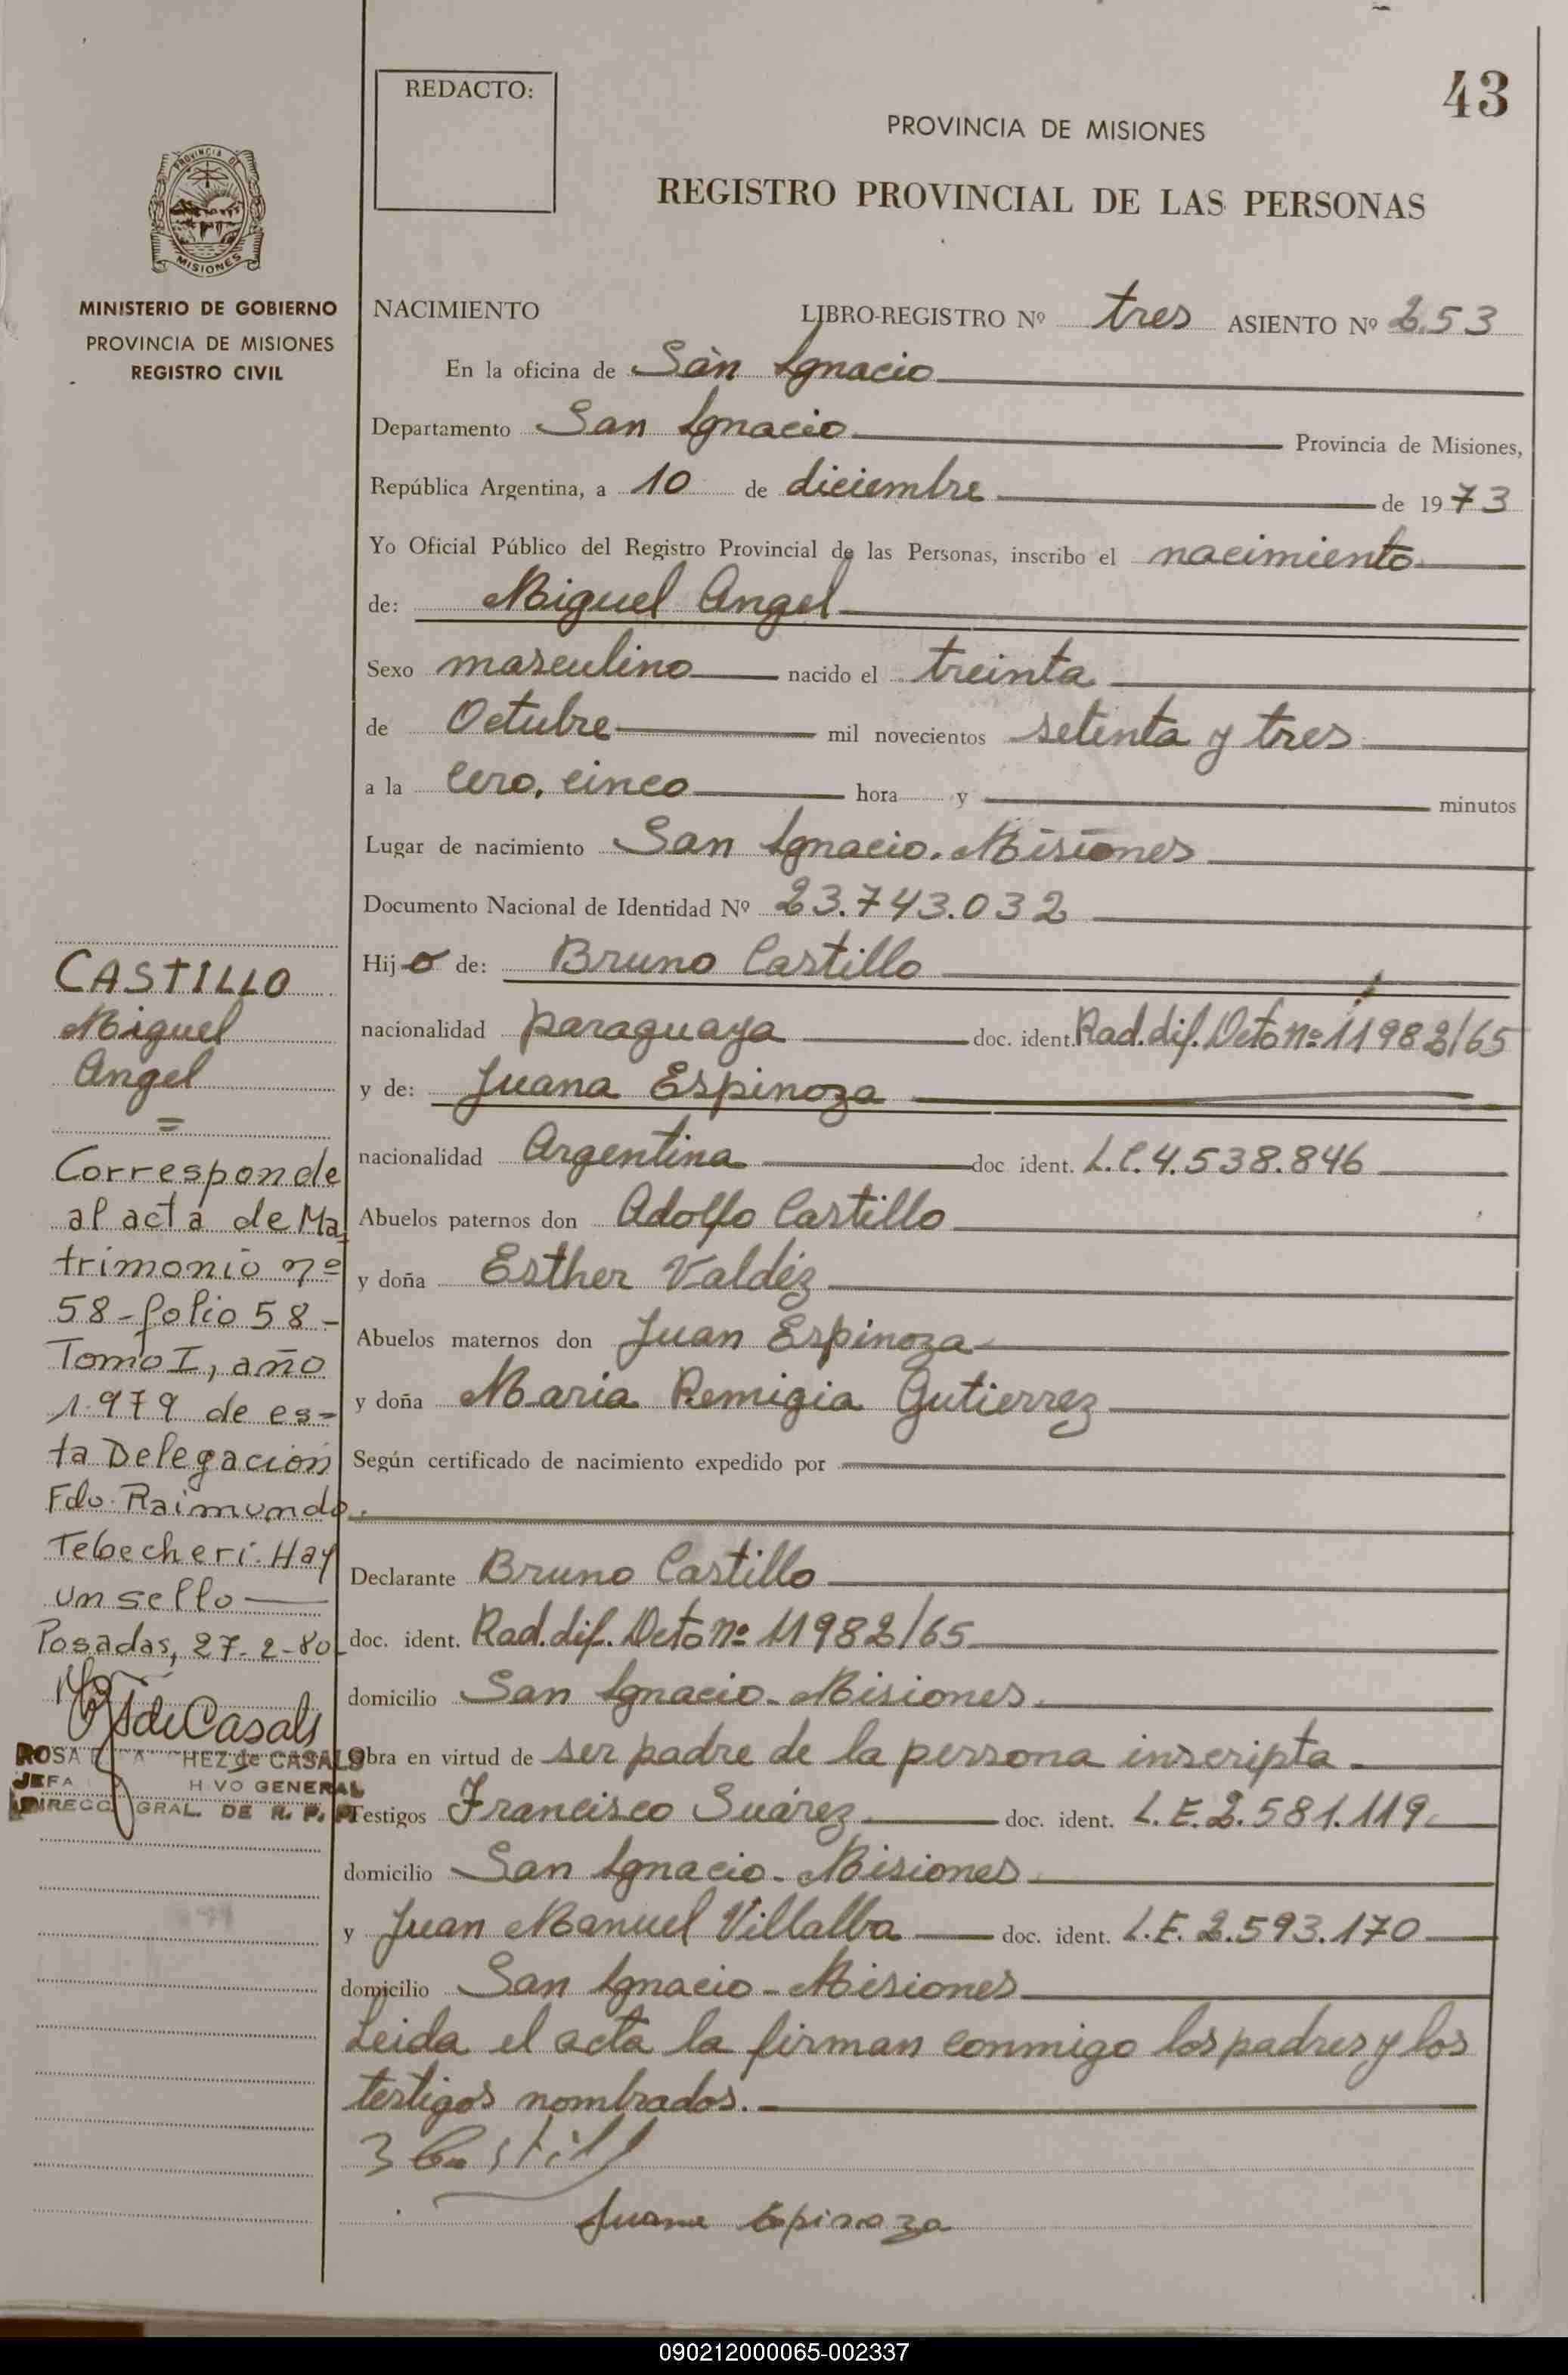 43
REDACTO:
PROVINCIA DE MISIONES
REGISTRO PROVINCIAL DE LAS PERSONAS
PROVINCIA DE
MISIONES
MINISTERIO DE GOBIERNO
PROVINCIA DE MISIONES
REGISTRO CIVIL
NACIMIENTO LIBRO-REGISTRO Nº tres ASIENTO Nº 253
En la oficina de San Ignacio
Departamento San Ignacio Provincia de Misiones,
República Argentina, a 10 de diciembre de 1973
Yo Oficial Público del Registro Provincial de las Personas, inscribo el nacimiento
de: Miguel Angel
Sexo masculino nacido el treinta
de Octubre mil novecientos setenta y tres
a la cero, cinco hora y minutos
Lugar de nacimiento San Ignacio. Misiones
Documento Nacional de Identidad Nº 23.743.032
Hijo de: Bruno Castillo
nacionalidad paraguaya doc. ident. Rad. dif. Dcto nº 11982/65
y de: Juana Espinoza
nacionalidad Argentina doc ident. L.C. 4.538.846
Abuelos paternos don Adolfo Castillo
y doña Esther Valdéz
Abuelos maternos don Juan Espinoza
y doña Maria Remigia Gutierrez
Según certificado de nacimiento expedido por
Declarante Bruno Castillo
doc. ident. Rad. dif. Dcto nº 11982/65
domicilio San Ignacio - Misiones
Obra en virtud de ser padre de la persona inscripta
Testigos Francisco Suárez doc. ident. L.E. 2.581.119
domicilio San Ignacio - Misiones
y Juan Manuel Villalba doc. ident. L.E. 2.593.170
domicilio San Ignacio - Misiones
Leida el acta la firman conmigo los padres y los
testigos nombrados.
Juana Espinoza
CASTILLO
Miguel
Angel
=
Corresponde
al acta de Ma-
trimonio nº
58 - folio 58 -
Tomo I, año
1.979 de es-
ta Delegación
Fdo. Raimundo
Tebecheri. Hay
un sello
Posadas, 27-2-80
de Casals
ROSA HEZ de CASALS
JEFA VO GENERAL
DIRECC GRAL. DE R. P. P.
090212000065-002337